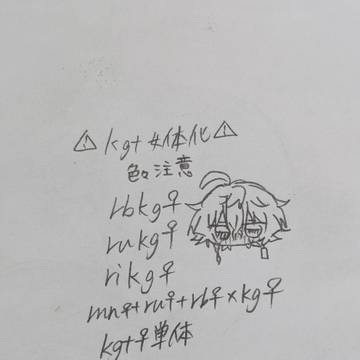 ⚠kgt女体化⚠
色々注意
rbkg♀
rukg♀
rikg♀
mn♀+ru♀+rb♀×kg♀
kgt♀単体